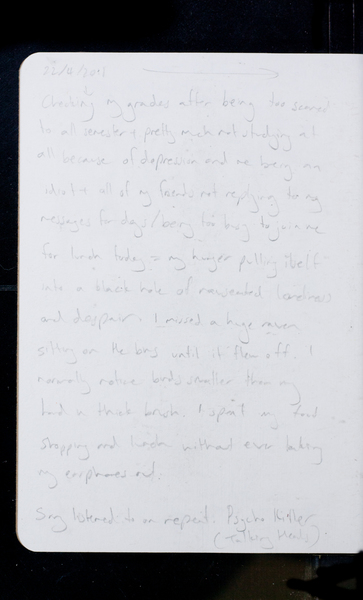 Checking my grades after being too scared
to all semester + pretty much not studying at
all because of depression and me being an
idiot + all of my friends not replying to my
messages for days / being too busy to join me
for lunch today = my hunger pulling itself
into a black hole of loneliness
and despair. I missed a huge raven
sitting on the until it flew off. I
normally notice birds smaller than my
in thick brush. I spent my food
shopping and lunch without ever taking
my earphones out.
Song listened to on repeat: Psycho Killer
(Talking Heads).